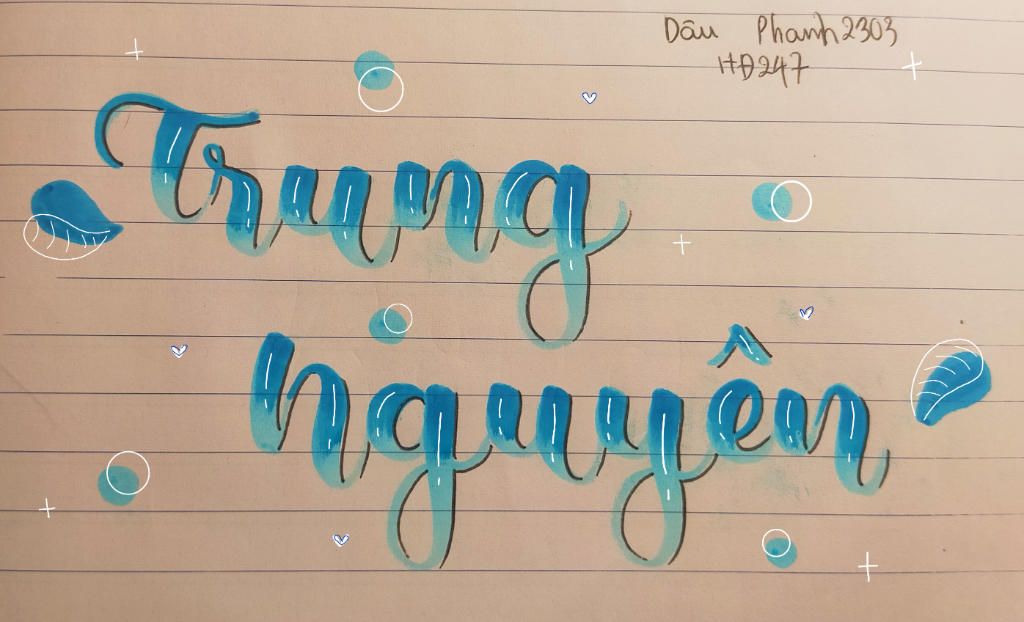 Dâu Phanh2303
HĐ247
Trung
Nguyên